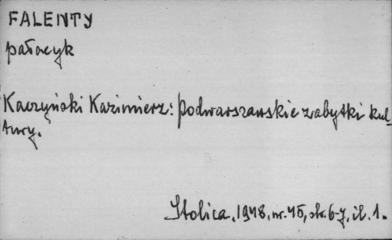 FALENTY
pałacyk
Kaczyński Kazimierz: Podwarszawskie zabytki kul-
tury.
Stolica, 1948, nr. 45, str. 6-7, il. 1.